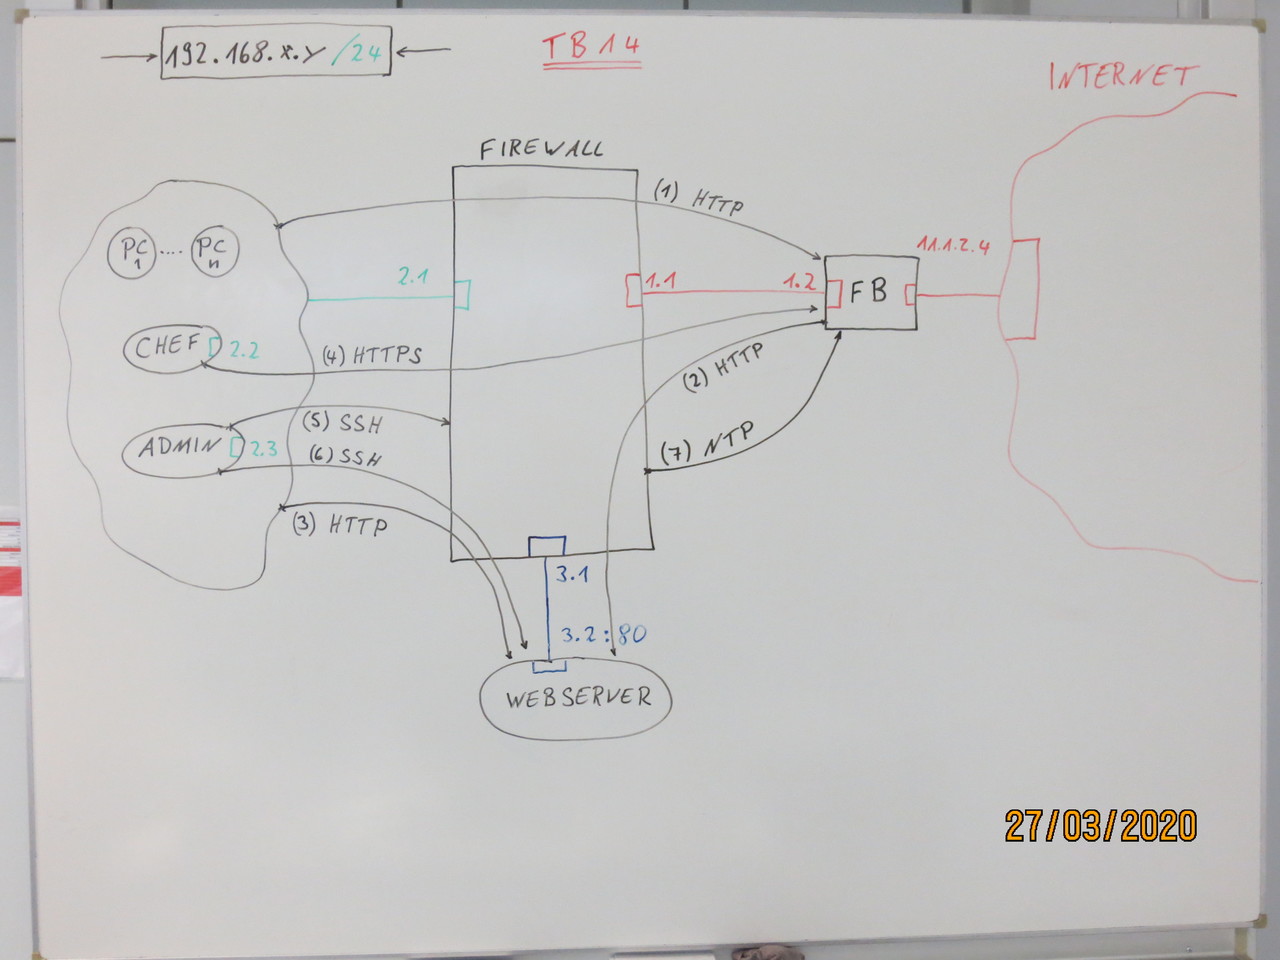 192.168.x.y /24
TB14
INTERNET
FIREWALL
(1) HTTP
PC 1 .... PC n
11.1.2.4
2.1
1.1
1.2
FB
CHEF 2.2
(4) HTTPS
(2) HTTP
(5) SSH
ADMIN 2.3
(6) SSH
(7) NTP
(3) HTTP
3.1
3.2:80
WEBSERVER
27/03/2020